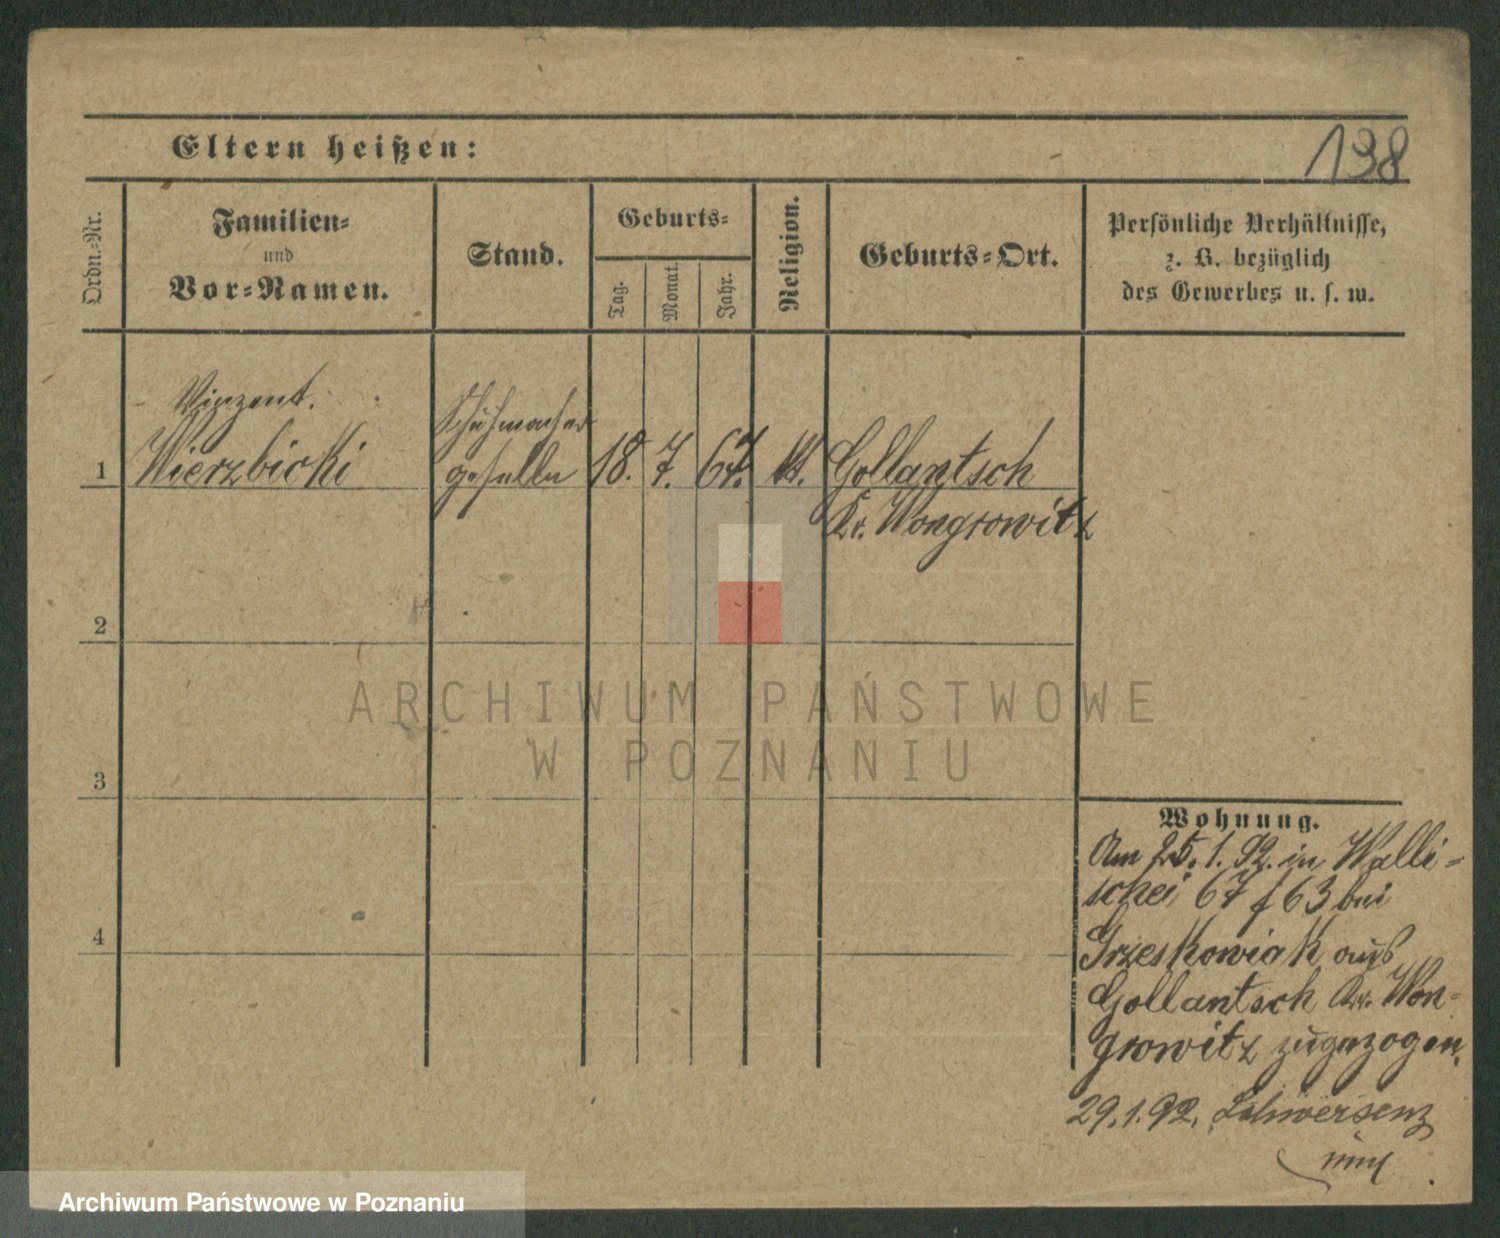 Eltern heißen:
138
Ordn.-Nr.
Familien-
und
Vor-Namen.
Stand.
Geburts-
Tag.
Monat.
Jahr.
Religion.
Geburts-Ort.
Persönliche Verhältnisse,
z. B. bezüglich
des Gewerbes u. s. w.
Vinzent.
Wierzbicki
Schuhmacher
geselle
18. 7. 67.
Gollantsch
Kr. Wongrowitz
1
2
3
4
ARCHIWUM PAŃSTWOWE
W POZNANIU
Wohnung.
Am 25.1.92. in Walli-
schei 67 f 63 bei
Grzeskowiak aus
Gollantsch Kr. Won-
growitz zugezogen.
29.1.92. Schwersenz
Archiwum Państwowe w Poznaniu